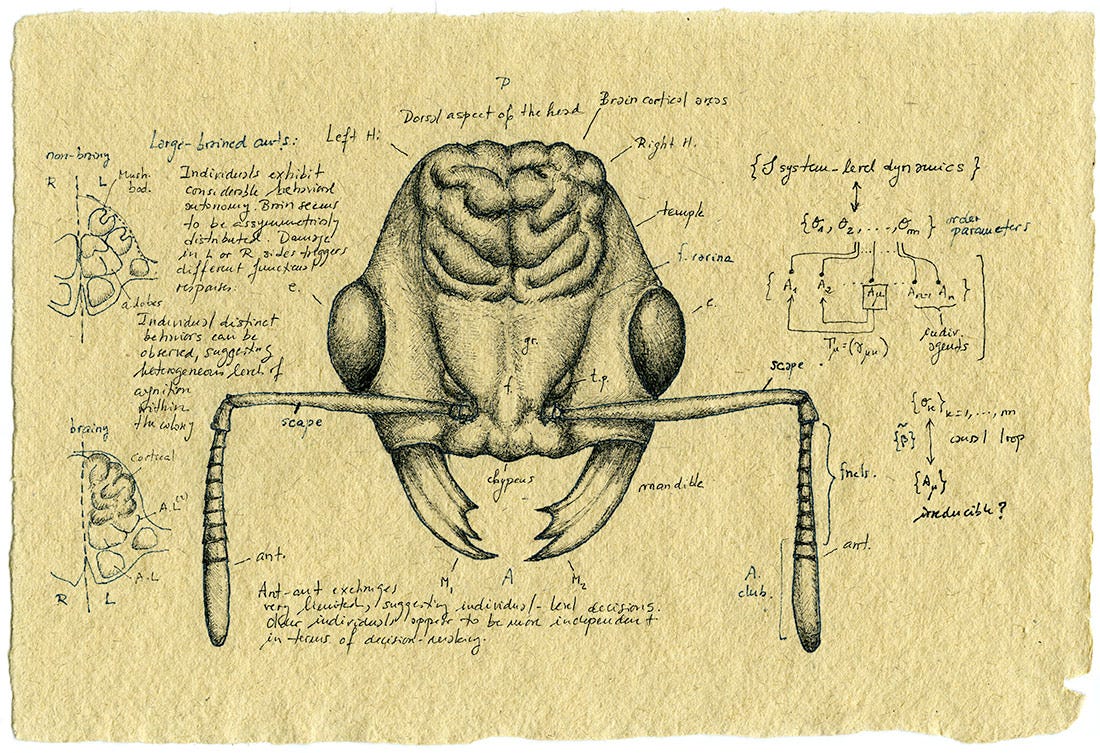 P
Dorsal aspect of the head
Brain cortical areas
Left H.
Right H.
Large-brained ants:
non-brainy
R L
Mush.
bod.
Individuals exhibit
considerable behavioral
autonomy. Brain seems
to be assymmetricly
distributed. Damage
in L or R sides triggers
different functional
responses.
a. lobes
e.
temple
f. carina
c.
gr.
f.
t.p.
scape
scape
clypeus
mandible
M1
A
M2
Individual distinct
behaviors can be
observed, suggesting
heterogeneous level of
cognition
within
the colony
brainy
cortical
A.L
A.L
R L
ant.
ant.
A.
club.
fncls.
Ant-ant exchanges
very limited, suggesting individual-level decisions.
individuals appear to be more independent
in terms of decision-making.
{ system-level dynamics }
{θ1, θ2, ..., θm} order
parameters
{ A1 A2 ... Aμ ... An-1 An }
Γμ=(γμν)
indiv.
agents
{θk}k=1,...,m
{β̃} causal loop
{Aμ}
irreducible?